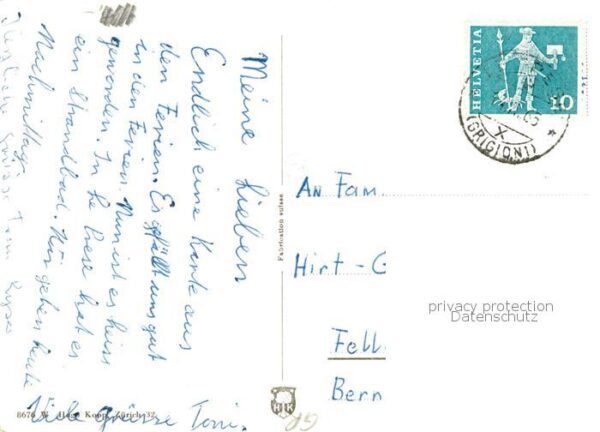 Meine Lieben
Endlich eine Karte aus
den Ferien. Es gefällt uns gut
in den Ferien. Nun ist es heiss
geworden. In Le Prese hat es
ein Strandbad. Wir gehen heute
Nachmittag
Viele grüsse Toni.
Grüsse von
Fabrication suisse
8676 W Hugo Kopp, Zürich 32
HK
HELVETIA
10
(GRIGIONI)
X
An Fam.
Hirt-G
Fell
Bern
privacy protection
Datenschutz